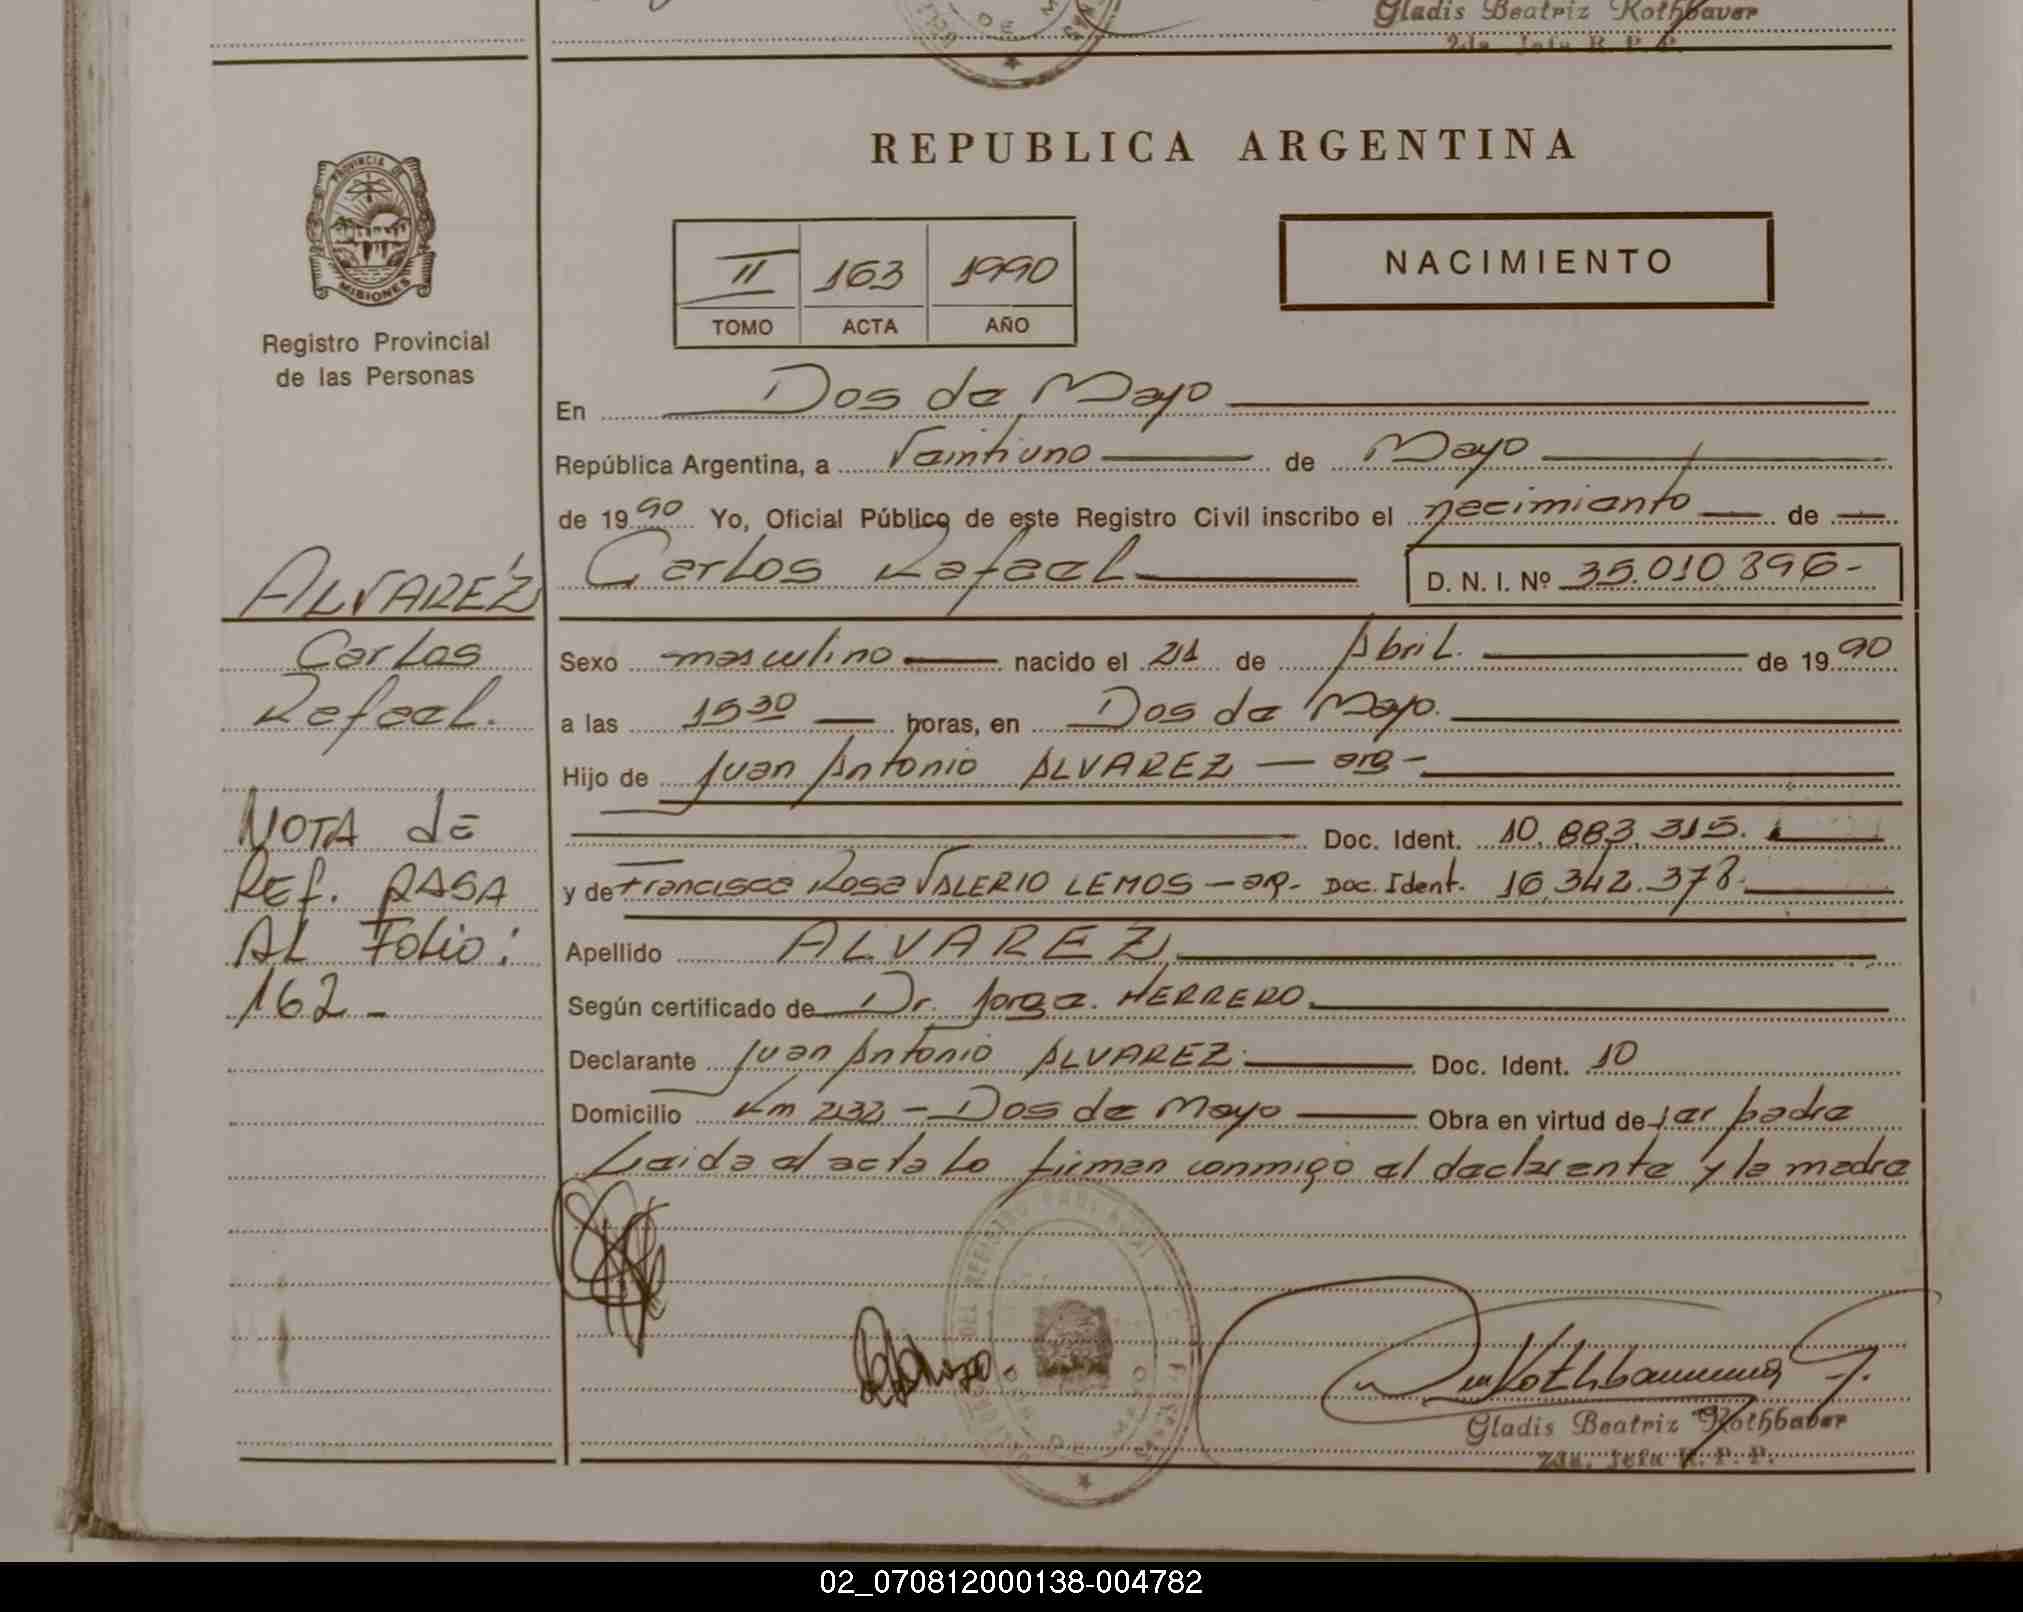 Gladis Beatriz Rothbaver
2da. Jefa R. P. P.
REPUBLICA ARGENTINA
PROVINCIA DE
MISIONES
Registro Provincial
de las Personas
II 163 1990
TOMO ACTA AÑO
NACIMIENTO
En Dos de Mayo
República Argentina, a Veintiuno de Mayo
de 1990 Yo, Oficial Público de este Registro Civil inscribo el nacimiento de
Carlos Rafael D. N. I. Nº 35.010.896-
ALVAREZ
Carlos
Rafael.
NOTA de
Ref. PASA
AL Folio:
162-
Sexo masculino nacido el 21 de Abril. de 1990
a las 15 30 horas, en Dos de Mayo.
Hijo de Juan Antonio ALVAREZ — arg -
Doc. Ident. 10.883.315.
y de Francisca Rosa VALERIO LEMOS - arg- Doc. Ident. 16.342.378.
Apellido ALVAREZ
Según certificado de Dr. Jorge. HERRERO.
Declarante Juan Antonio ALVAREZ. Doc. Ident. 10
Domicilio Km 232 - Dos de Mayo Obra en virtud de ser padre
Leida el acta lo firman conmigo el declarante y la madre
Gladis Beatriz Rothbaver
2da. Jefa R. P. P.
02_070812000138-004782